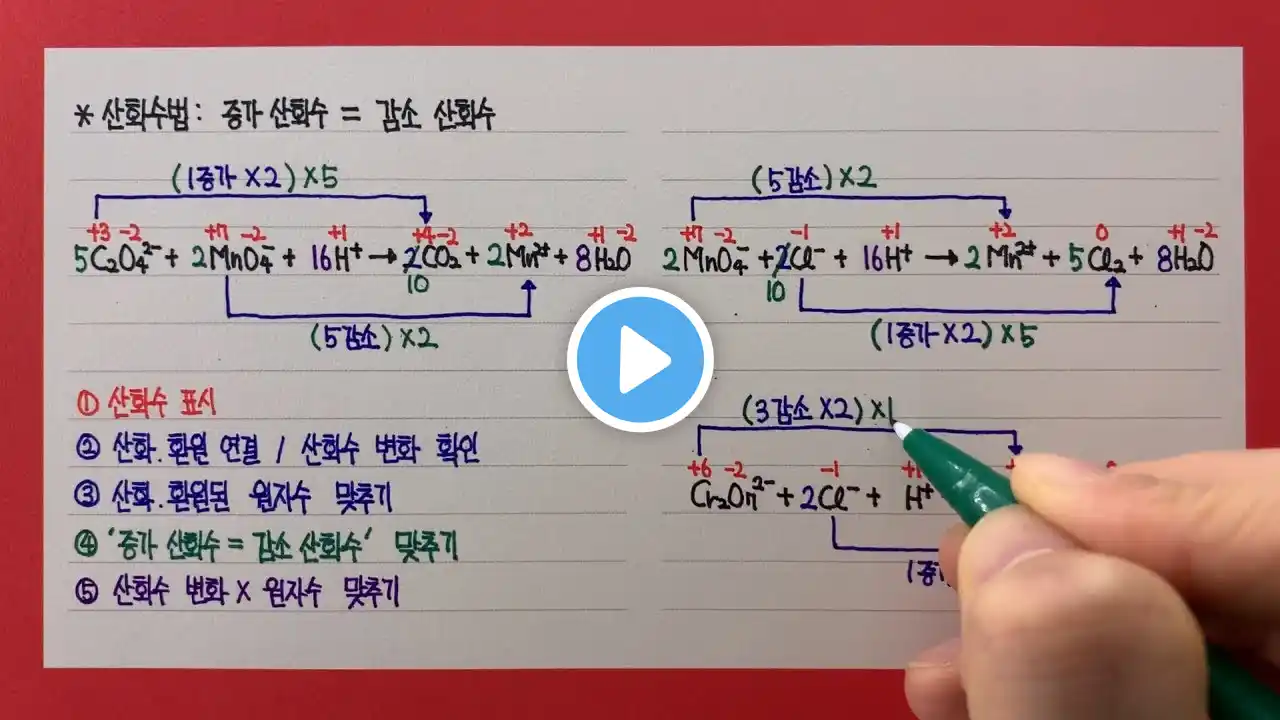 * 산화수법: 증가 산화수 = 감소 산화수
(1증가 X2) X5
+3 -2 +7 -2 +1 +4 -2 +2 +1 -2
5C₂O₄²⁻ + 2MnO₄⁻ + 16H⁺ → 2CO₂ + 2Mn²⁺ + 8H₂O
10
(5감소) X2
(5감소) X2
+7 -2 -1 +1 +2 0 +1 -2
2MnO₄⁻ + 2Cl⁻ + 16H⁺ → 2Mn²⁺ + 5Cl₂ + 8H₂O
10
(1증가 X2) X5
① 산화수 표시
② 산화.환원 연결 / 산화수 변화 확인
③ 산화.환원된 원자수 맞추기
④ '증가 산화수 = 감소 산화수' 맞추기
⑤ 산화수 변화 X 원자수 맞추기
(3감소 X2) X1
+6 -2 -1
Cr₂O₇²⁻ + 2Cl⁻ + H⁺